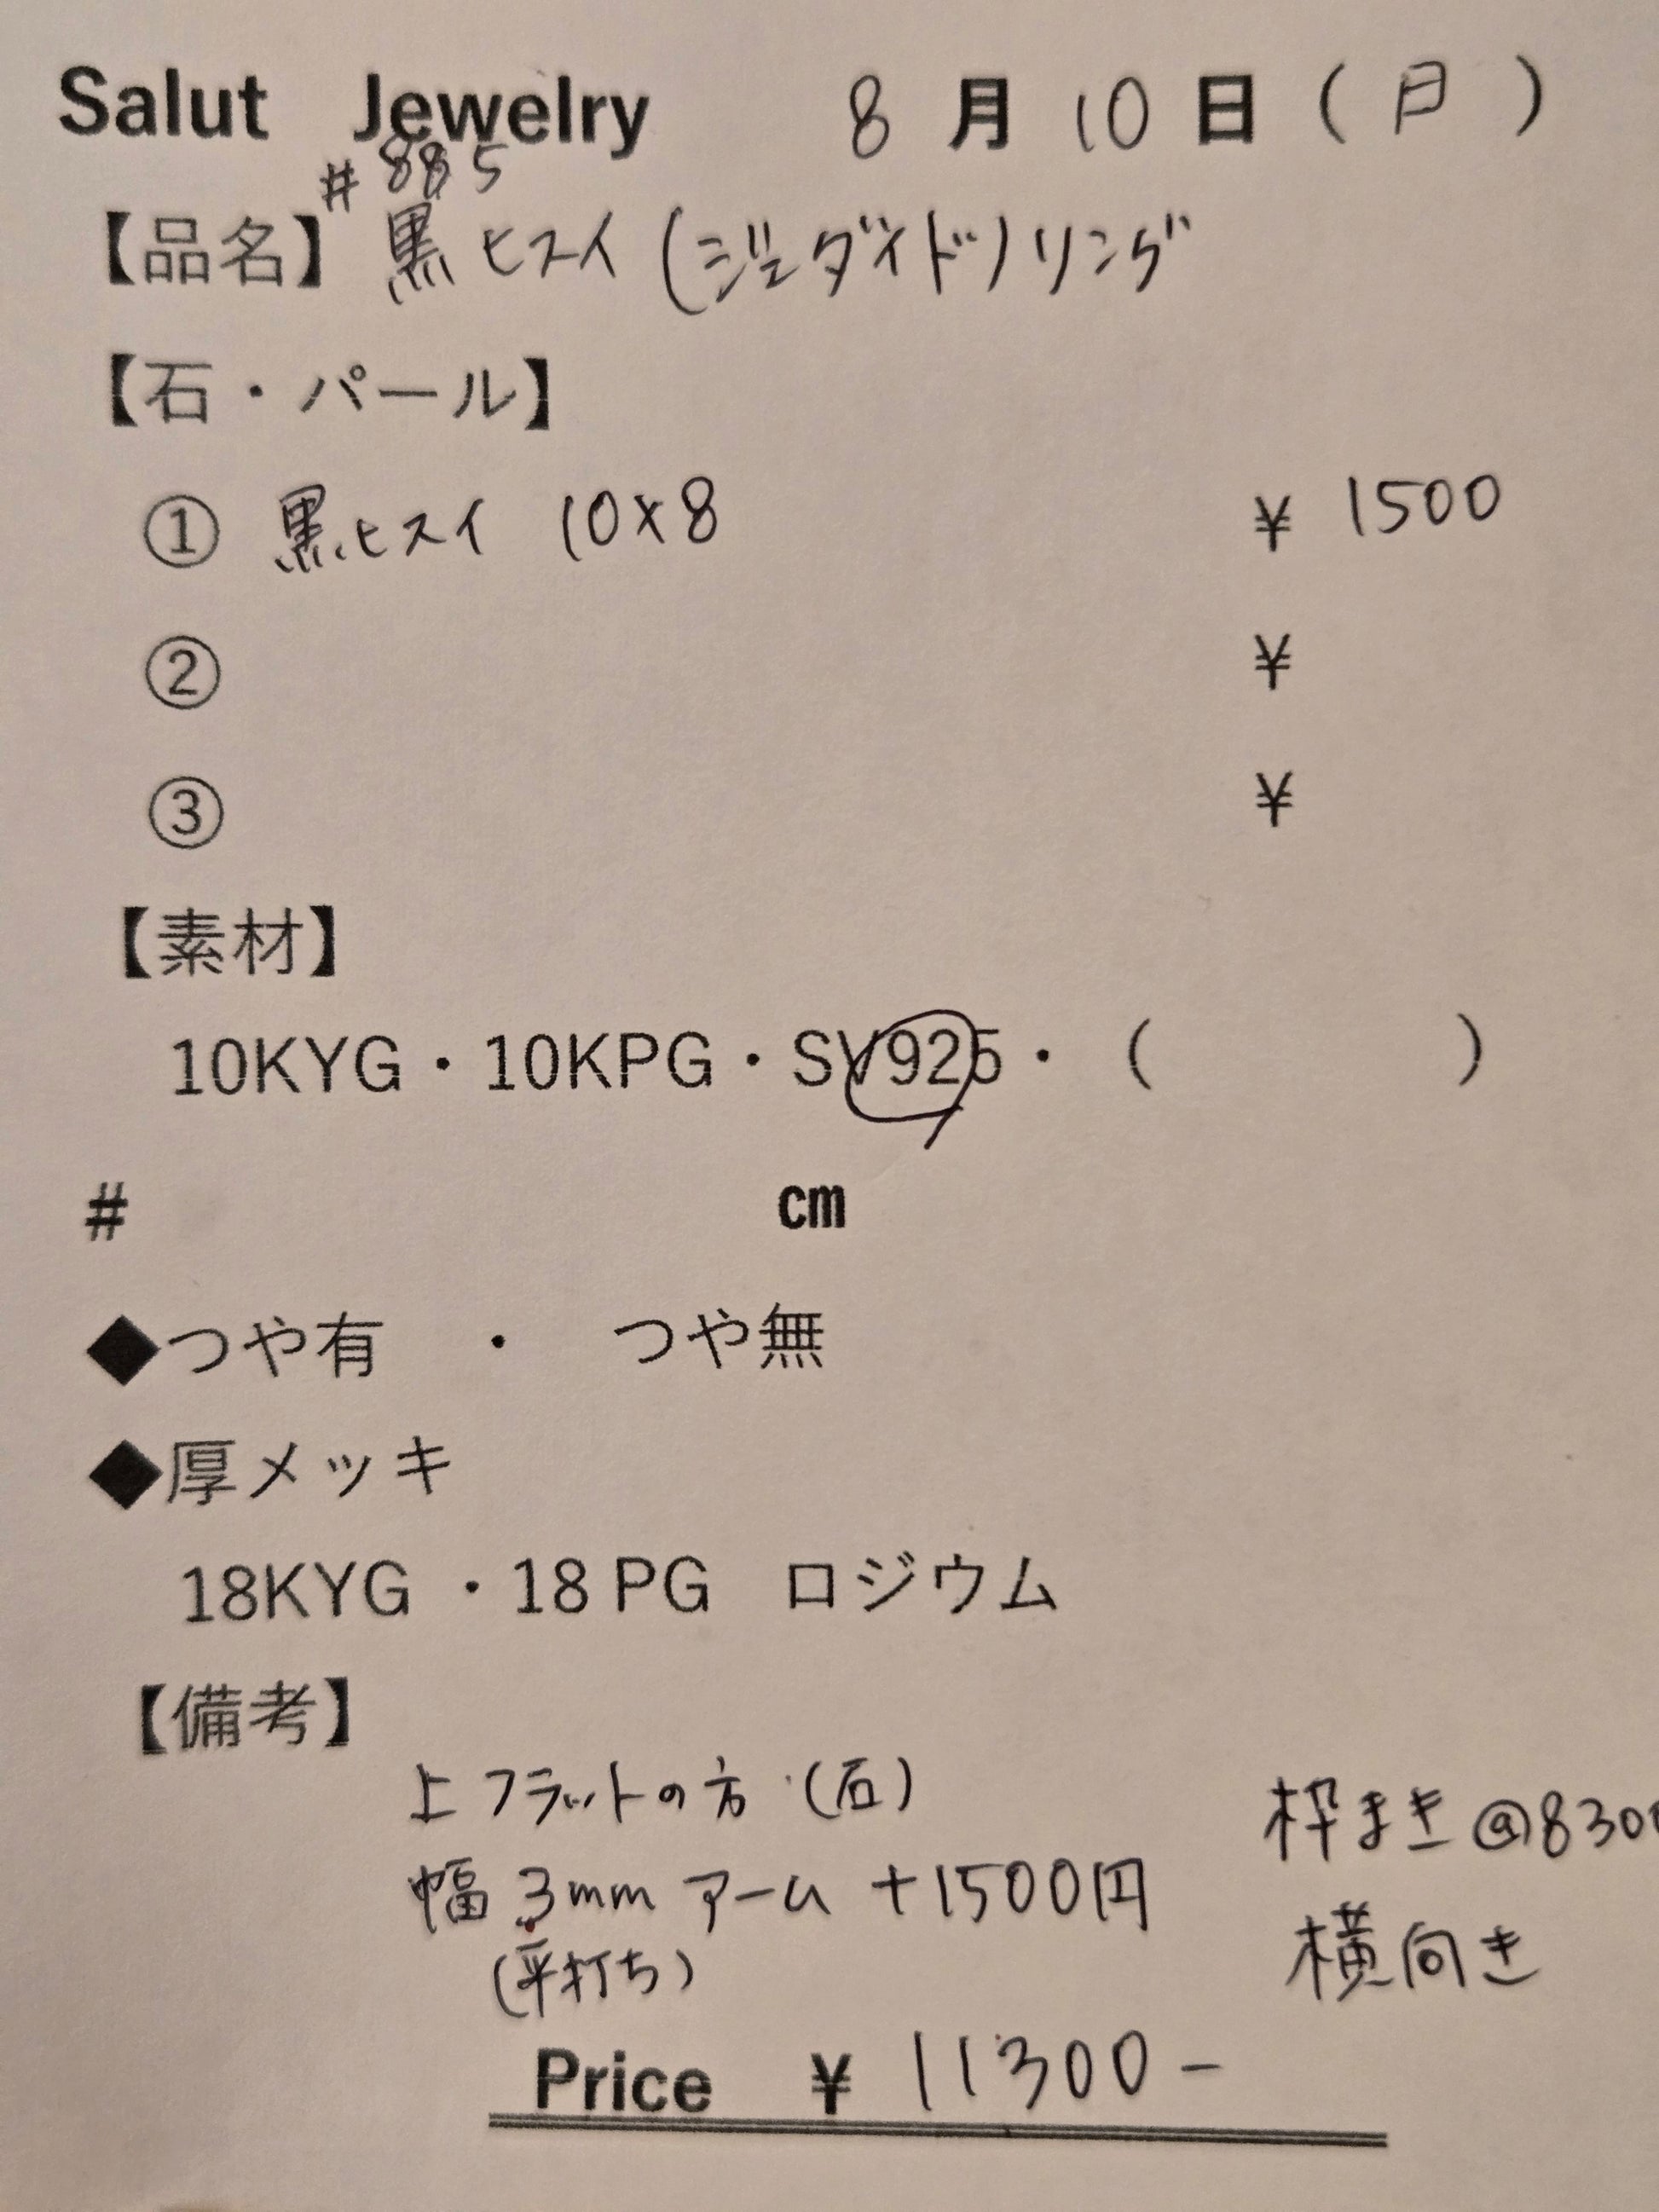 Salut Jewelry 8月10日(月)
#885
【品名】黒ヒスイ(ジェダイド)リング
【石・パール】
① 黒ヒスイ 10×8 ¥1500
② ¥
③ ¥
【素材】
10KYG・10KPG・SV925・( )
# cm
◆つや有 ・ つや無
◆厚メッキ
18KYG ・18 PG ロジウム
【備考】
上フラットの方(石) 枠まき@8300
幅3mmアーム+1500円
(平打ち) 横向き
Price ¥ 11300-